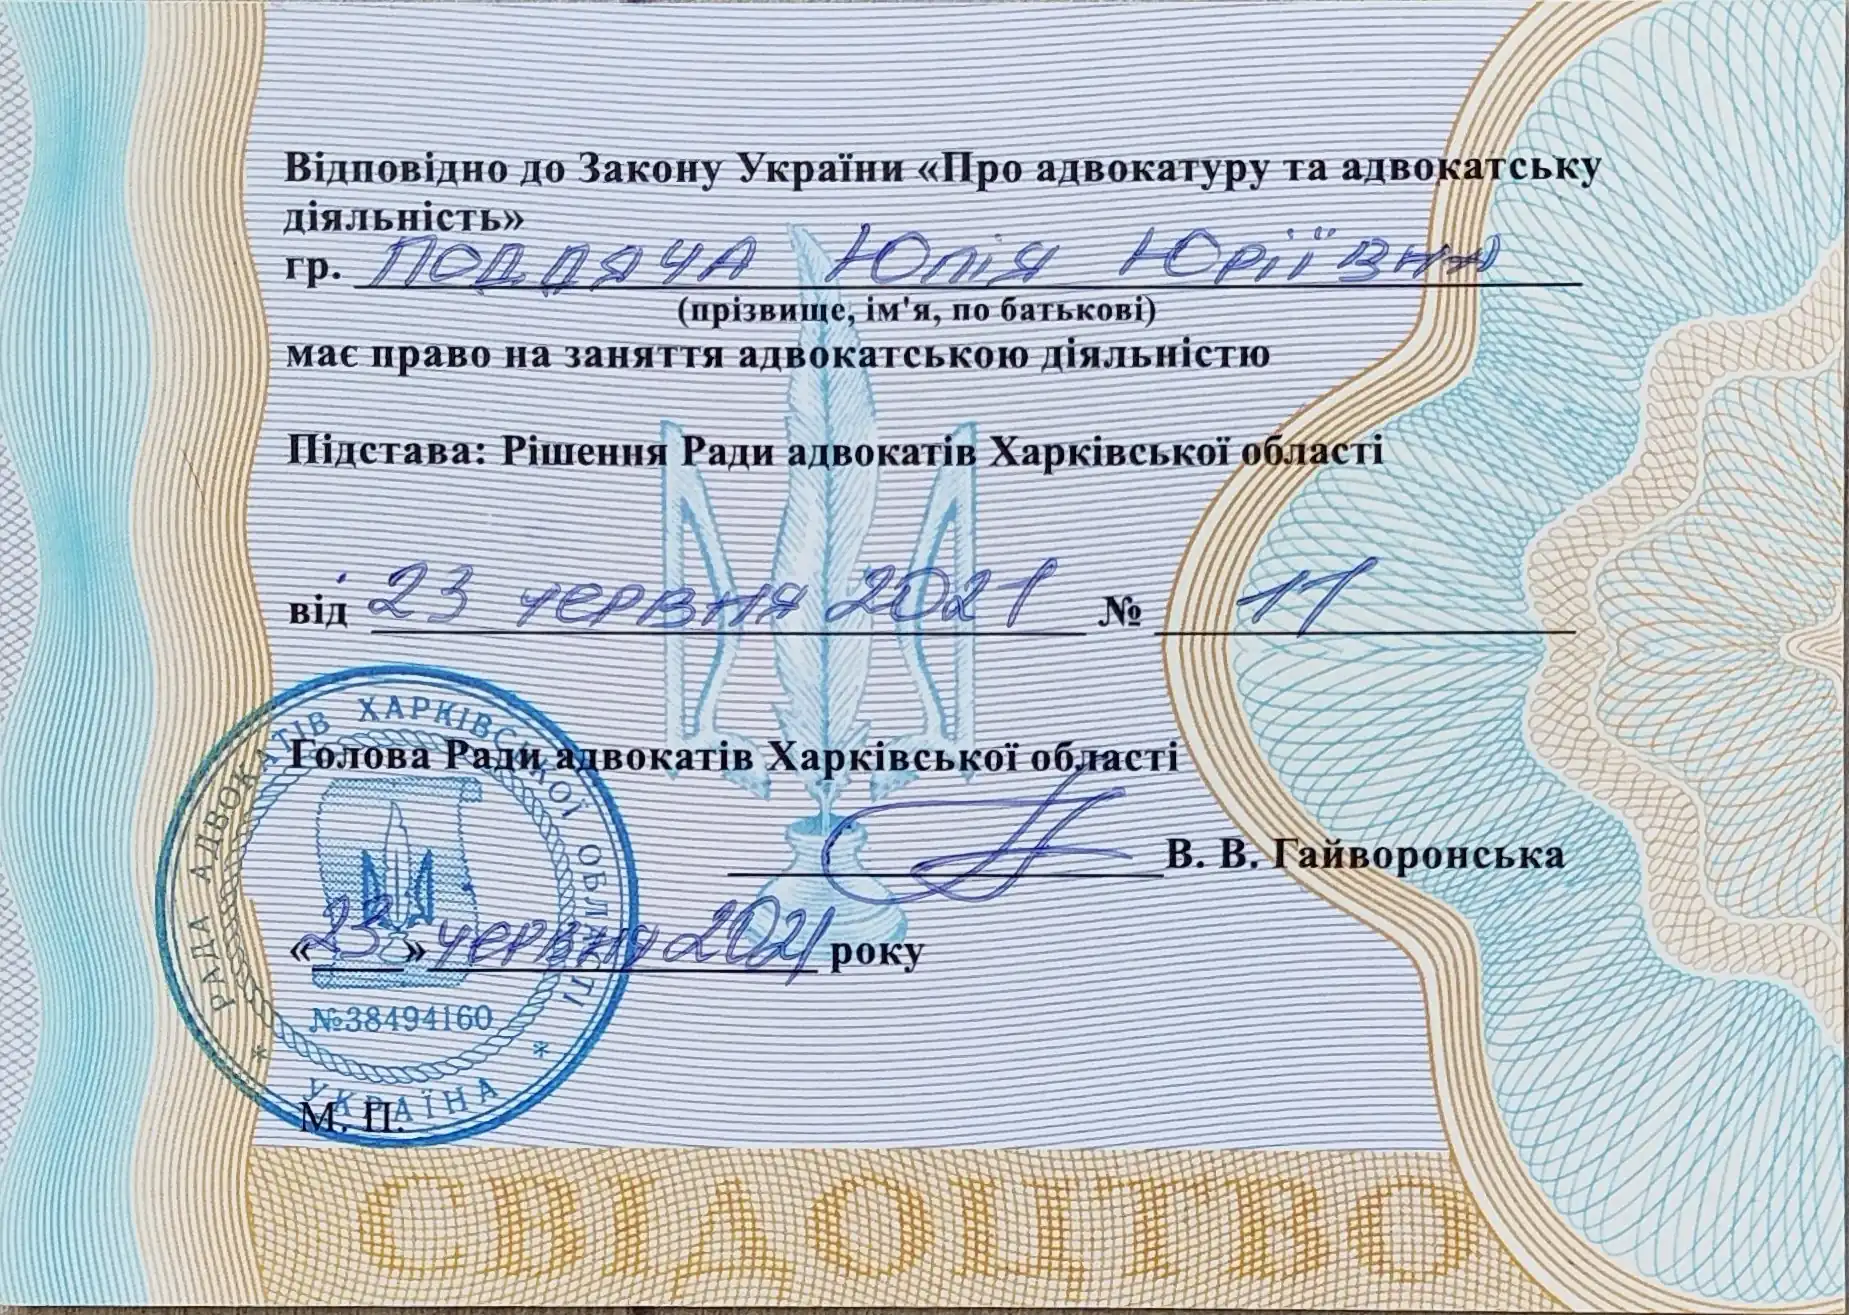 Відповідно до Закону України «Про адвокатуру та адвокатську
діяльність»
гр. Поддяча Юлія Юріївна
(прізвище, ім'я, по батькові)
має право на заняття адвокатською діяльністю
Підстава: Рішення Ради адвокатів Харківської області
від 23 червня 2021 № 11
Голова Ради адвокатів Харківської області
В. В. Гайворонська
«23» червня 2021 року
РАДА АДВОКАТІВ ХАРКІВСЬКОЇ ОБЛАСТІ
№38494160
* УКРАЇНА *
М. П.
СВІДОЦТВО